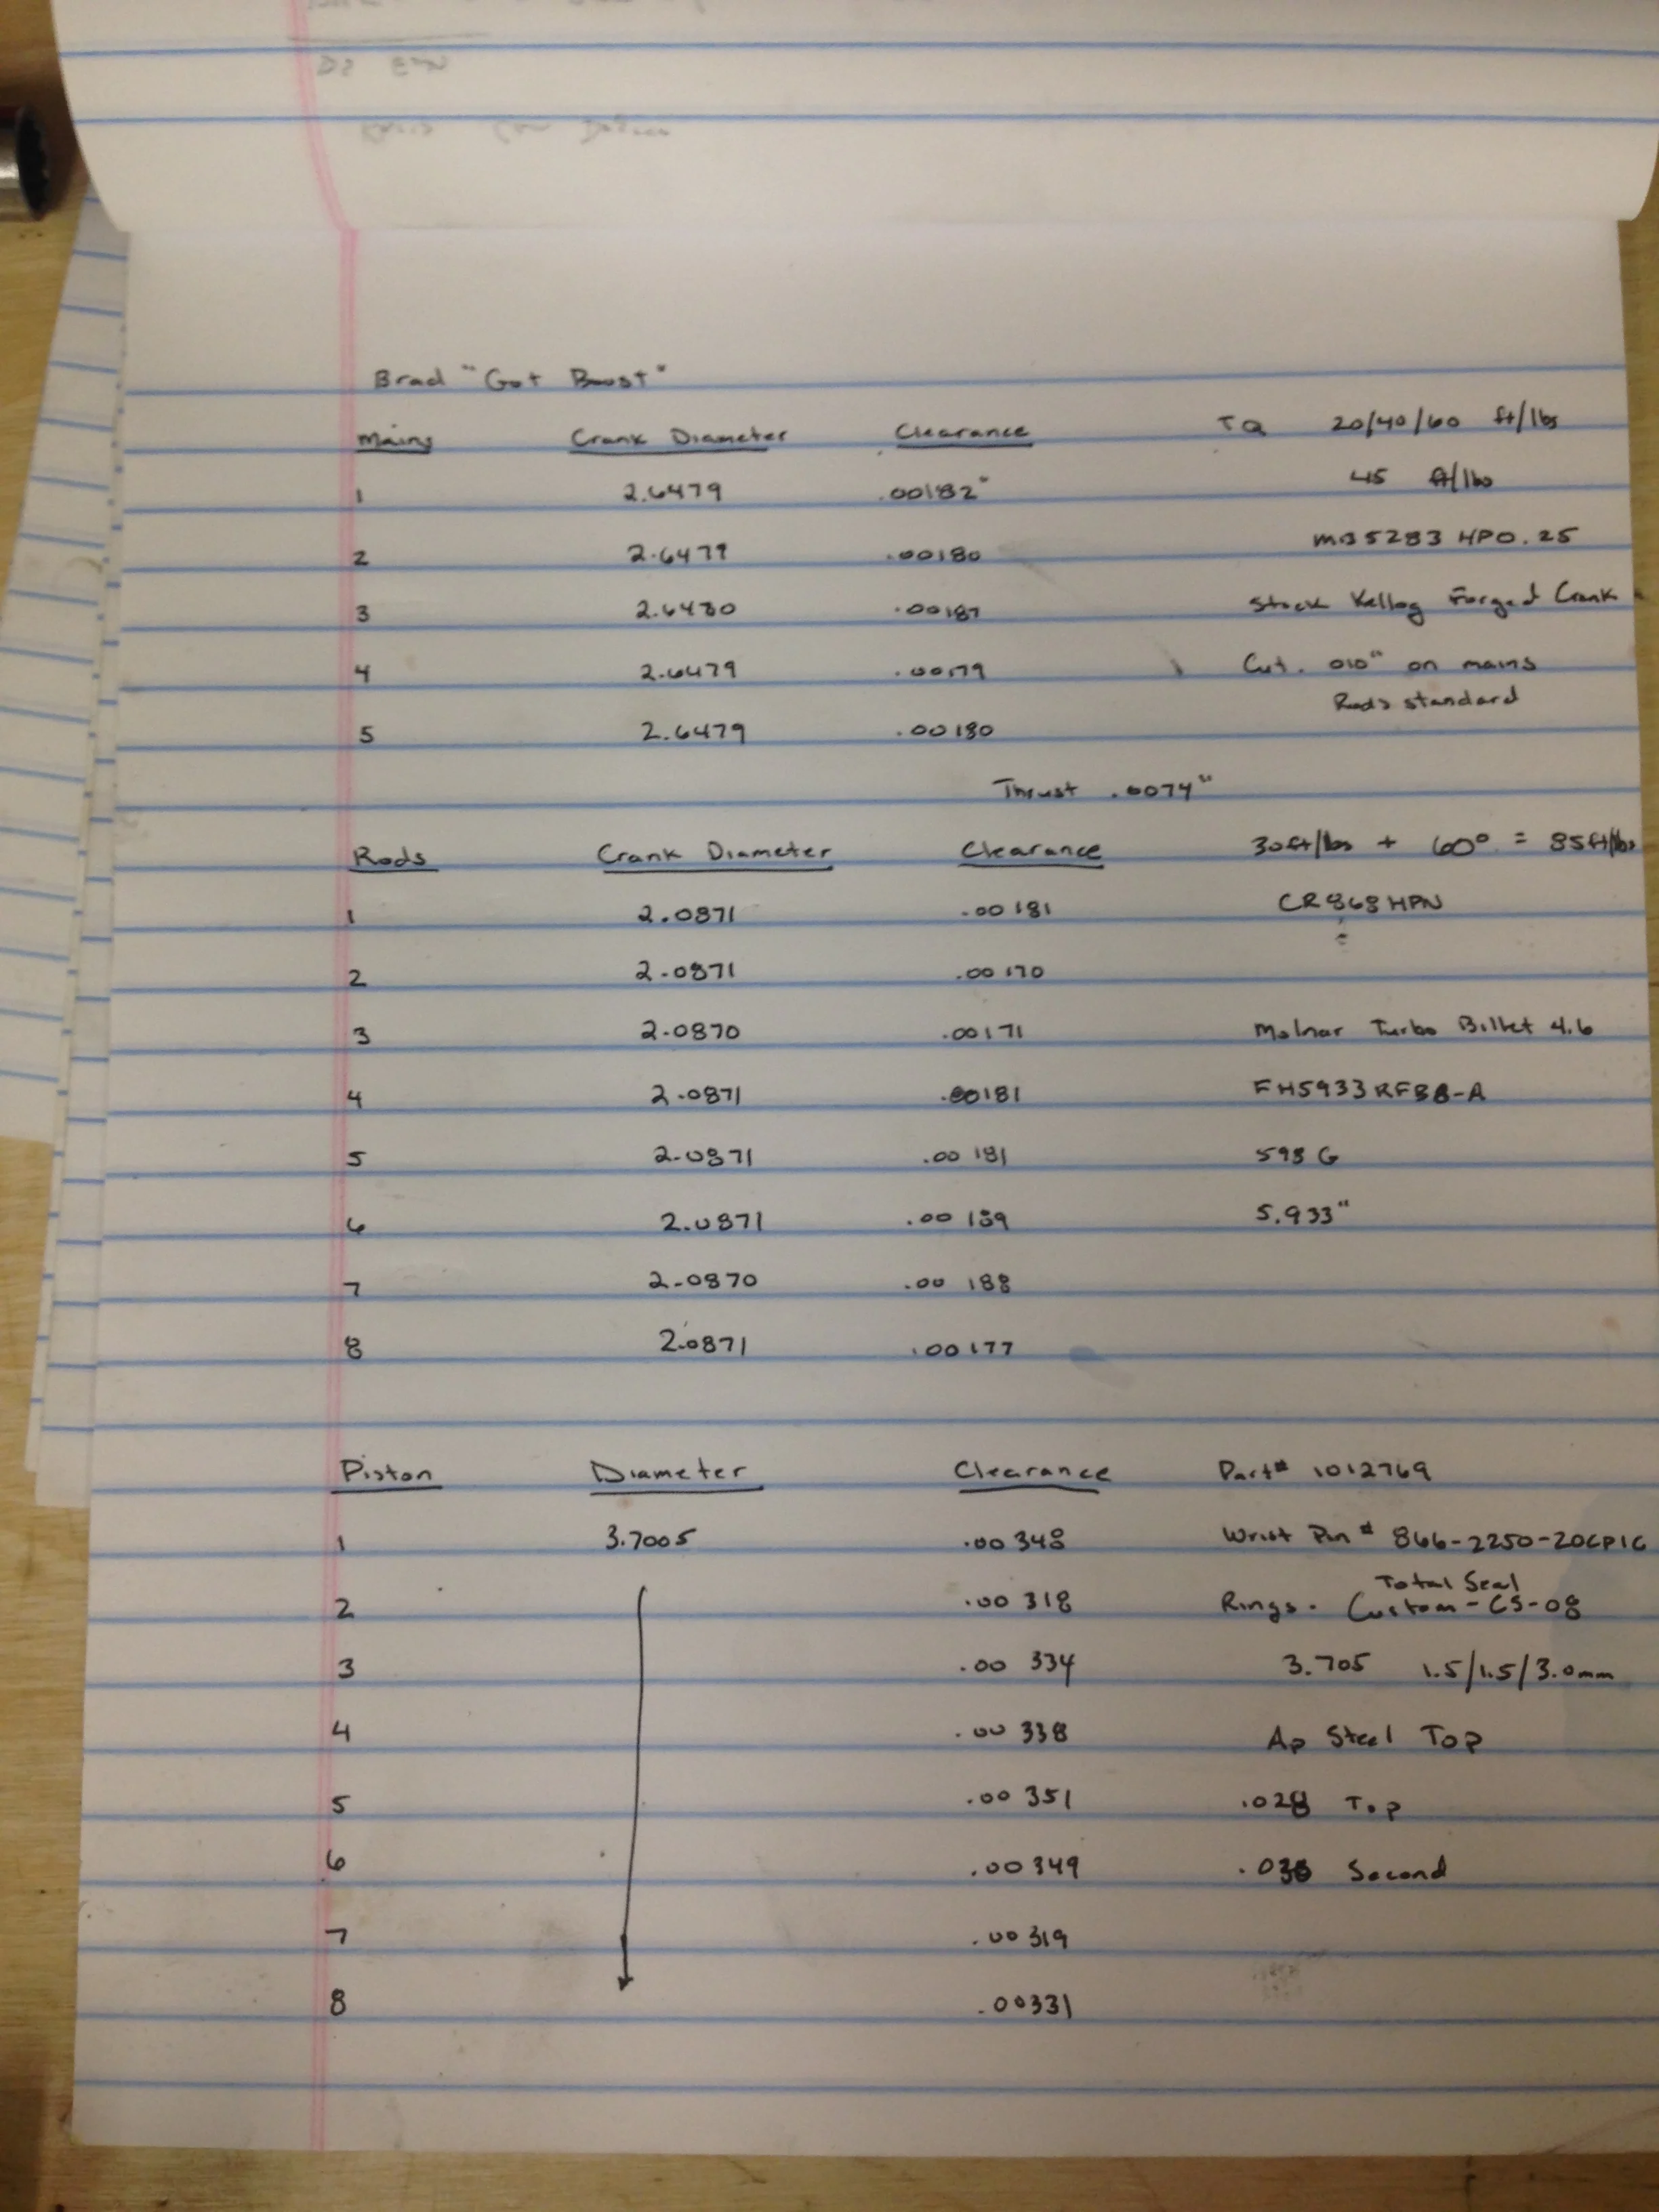 Brad "Got Boost"
Mains Crank Diameter Clearance TQ 20/40/60 ft/lbs
1 2.6479 .00182" 45 ft/lbs
2 2.6479 .00180 MB5283 HPO.25
3 2.6480 .00187 Stock Kellog Forged Crank
4 2.6479 .00179 Cut .010" on mains
Rods standard
5 2.6479 .00180
Thrust .0074"
Rods Crank Diameter Clearance 30ft/lbs + 60° = 85ft/lbs
1 2.0871 .00181 CR868HPN
2 2.0871 .00170
3 2.0870 .00171 Molnar Turbo Billet 4.6
4 2.0871 .00181 FH5933RFB8-A
5 2.0871 .00181 598 G
6 2.0871 .00189 5.933"
7 2.0870 .00188
8 2.0871 .00177
Piston Diameter Clearance Part# 1012769
1 3.7005 .00348 Wrist Pin # 866-2250-20CP1C
Total Seal
2 .00318 Rings. Custom-CS-08
3 .00334 3.705 1.5/1.5/3.0mm
4 .00338 Ap Steel Top
5 .00351 .028 Top
6 .00349 Second
7 .00319
8 .00331